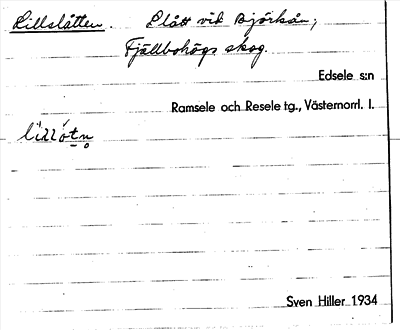 Lillslåtten. Slått vid Björkån,
Fjällbohögs skog.
Edsele s:n
Ramsele och Resele tg., Västernorrl. l.
Sven Hiller 1934